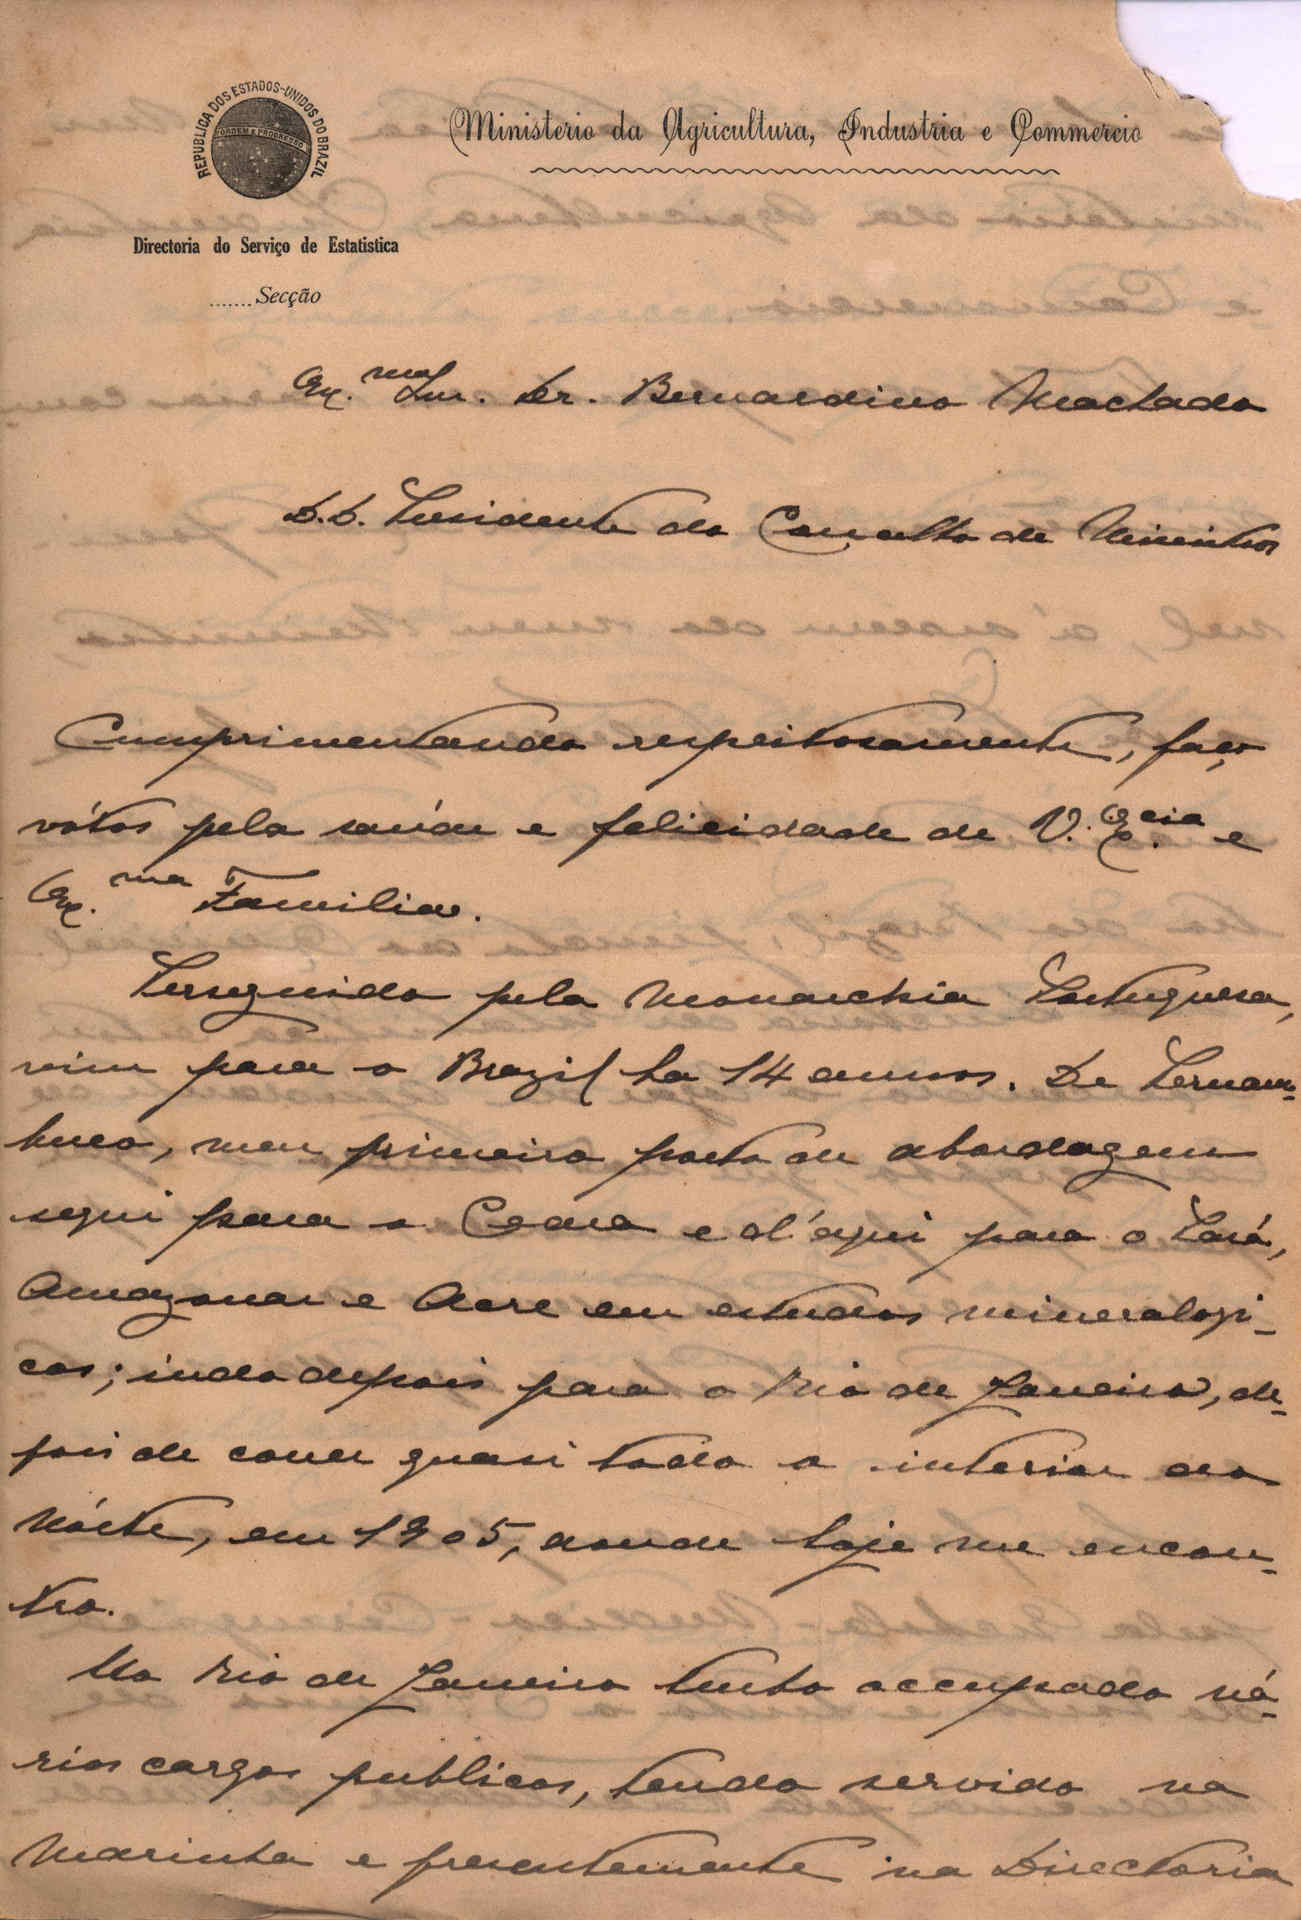 REPUBLICA DOS ESTADOS-UNIDOS DO BRAZIL
ORDEM E PROGRESSO
Ministerio da Agricultura, Industria e Commercio
Directoria do Serviço de Estatistica
.......Secção
Ex.mo Snr. Dr. Bernardino Machado
D.D. Presidente do Conselho de Ministros
Cumprimentando respeitosamente, faço
vótos pela saúde e felicidade de V. Ex.cia e
Ex.ma Familia.
Perseguido pela Monarchia Portuguesa,
vim para o Brazil ha 14 annos. De Pernam-
buco, meu primeiro porto de abordagem
segui para o Ceara e d'aqui para o Pará,
Amazonas e Acre em estudos mineralogi-
cos; indo depois para o Rio de Janeiro, de-
pois de correr quasi todo o interior do
Nórte, em 1905, aonde hoje me encon-
tro.
No Rio de Janeiro tenho occupado vá-
rios cargos publicos, tendo servido na
Marinha e presentemente na Directoria